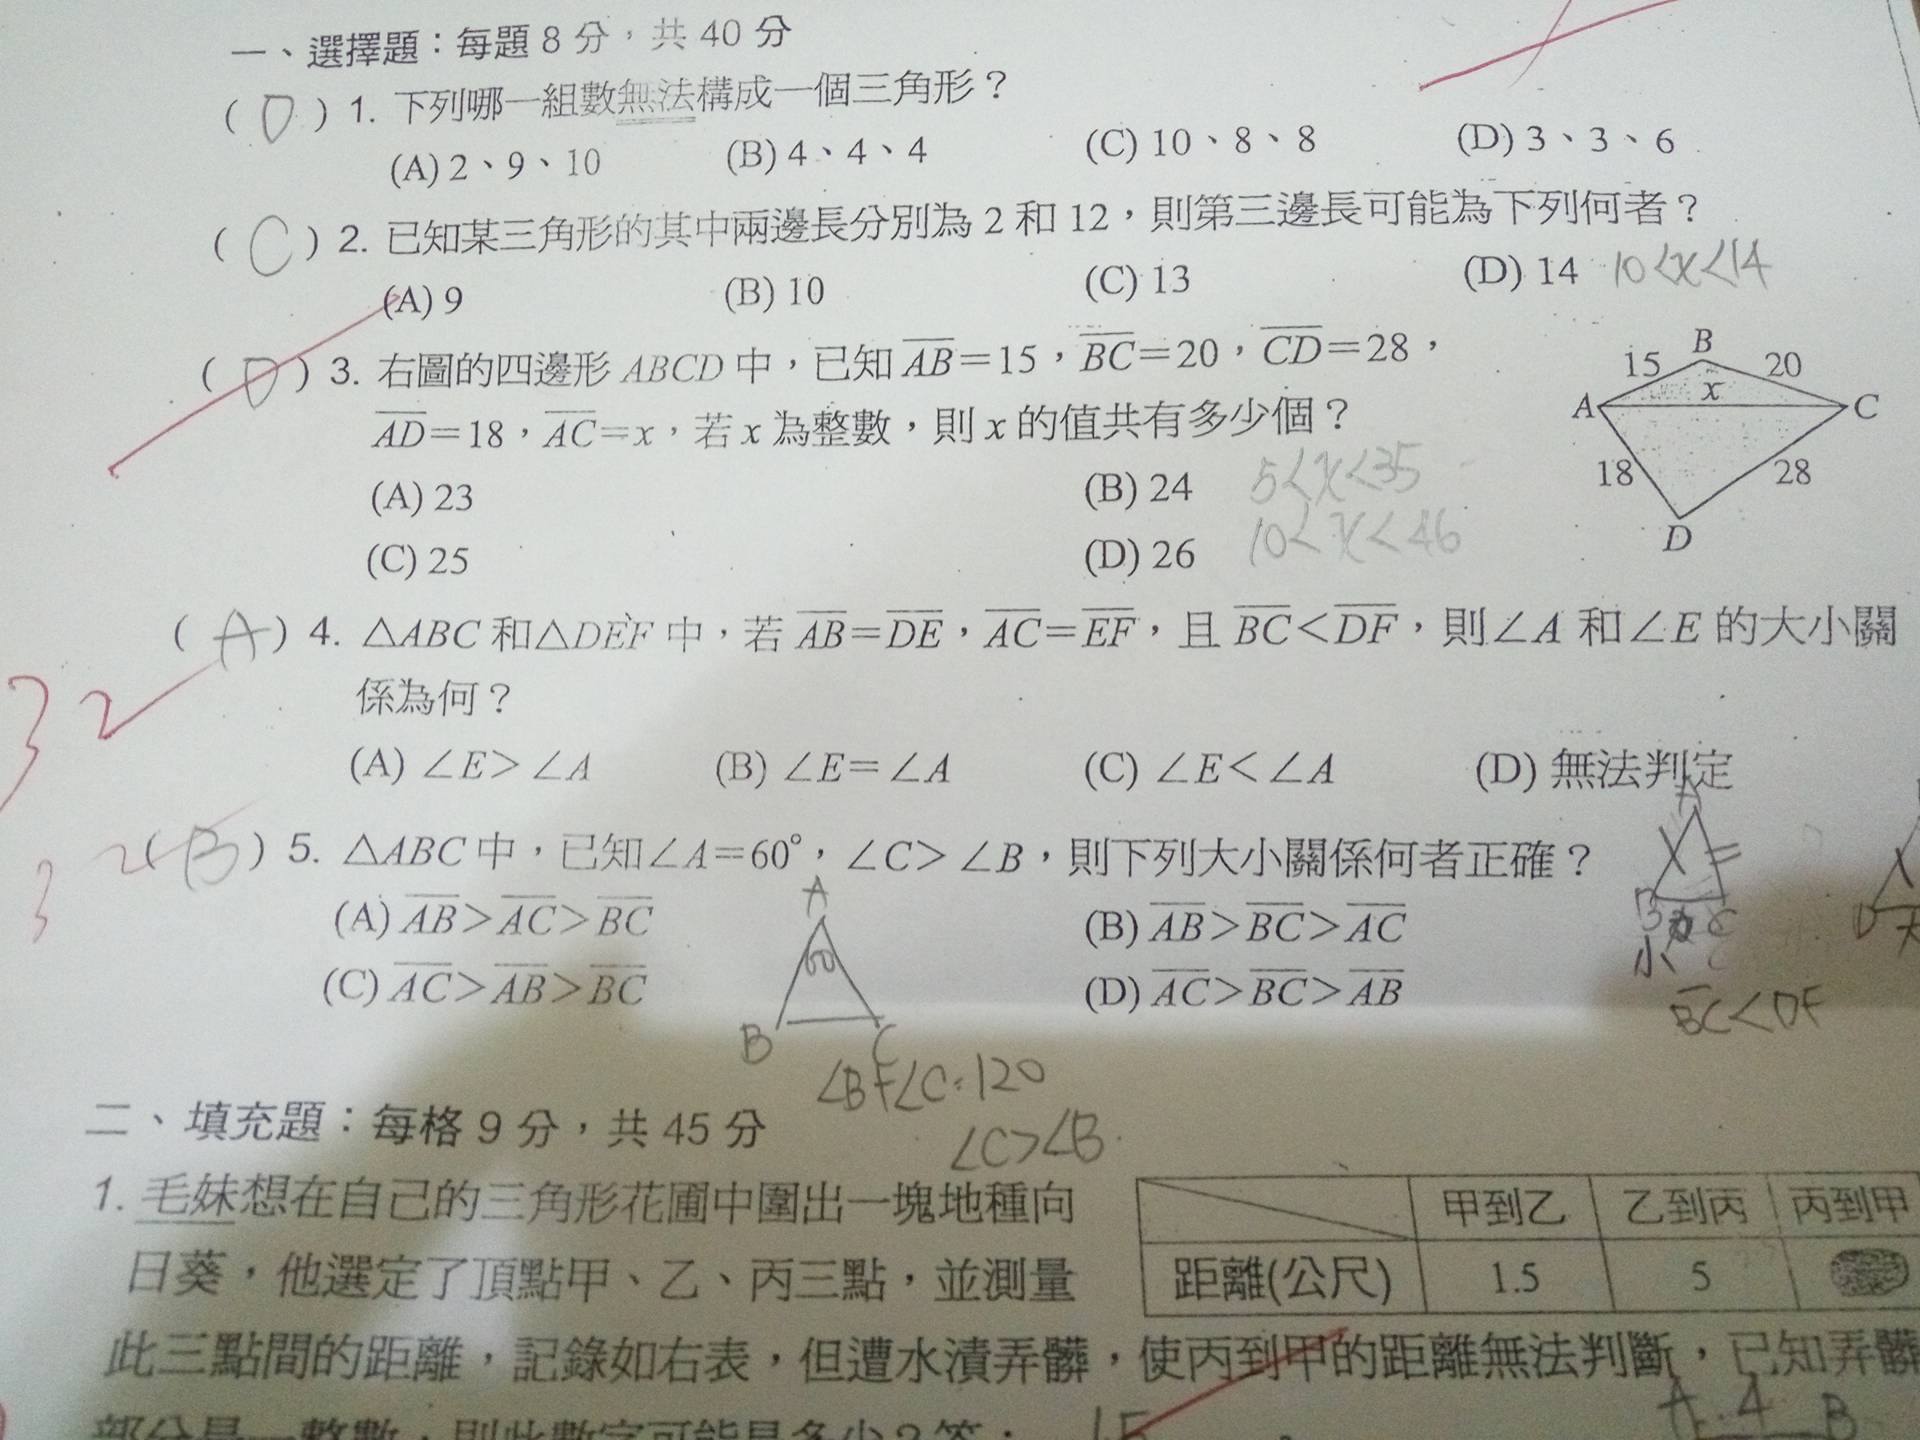 一、選擇題：每題 8 分，共 40 分
( D ) 1. 下列哪一組數無法構成一個三角形？
(A) 2、9、10 (B) 4、4、4 (C) 10、8、8 (D) 3、3、6
( C ) 2. 已知某三角形的其中兩邊長分別為 2 和 12，則第三邊長可能為下列何者？
(A) 9 (B) 10 (C) 13 (D) 14 10<x<14
( D ) 3. 右圖的四邊形 ABCD 中，已知 AB＝15，BC＝20，CD＝28，
AD＝18，AC＝x，若 x 為整數，則 x 的值共有多少個？
(A) 23 (B) 24 5<x<35
(C) 25 (D) 26 10<x<46
B
15 20
x
A C
18 28
D
( A ) 4. △ABC 和△DEF 中，若 AB＝DE，AC＝EF，且 BC＜DF，則∠A 和∠E 的大小關
係為何？
(A) ∠E＞∠A (B) ∠E＝∠A (C) ∠E＜∠A (D) 無法判定
32
( B ) 5. △ABC 中，已知∠A＝60°，∠C＞∠B，則下列大小關係何者正確？
(A) AB＞AC＞BC (B) AB＞BC＞AC
(C) AC＞AB＞BC (D) AC＞BC＞AB
32
A
60
B C
∠B+∠C=120
∠C>∠B
A
B C
小
BC<DF
D
二、填充題：每格 9 分，共 45 分
1. 毛妹想在自己的三角形花圃中圍出一塊地種向
日葵，他選定了頂點甲、乙、丙三點，並測量
甲到乙 乙到丙 丙到甲
距離(公尺) 1.5 5
此三點間的距離，記錄如右表，但遭水漬弄髒，使丙到甲的距離無法判斷，已知弄髒
部分是一整數，則此數字可能是多少？答：
A 4 B